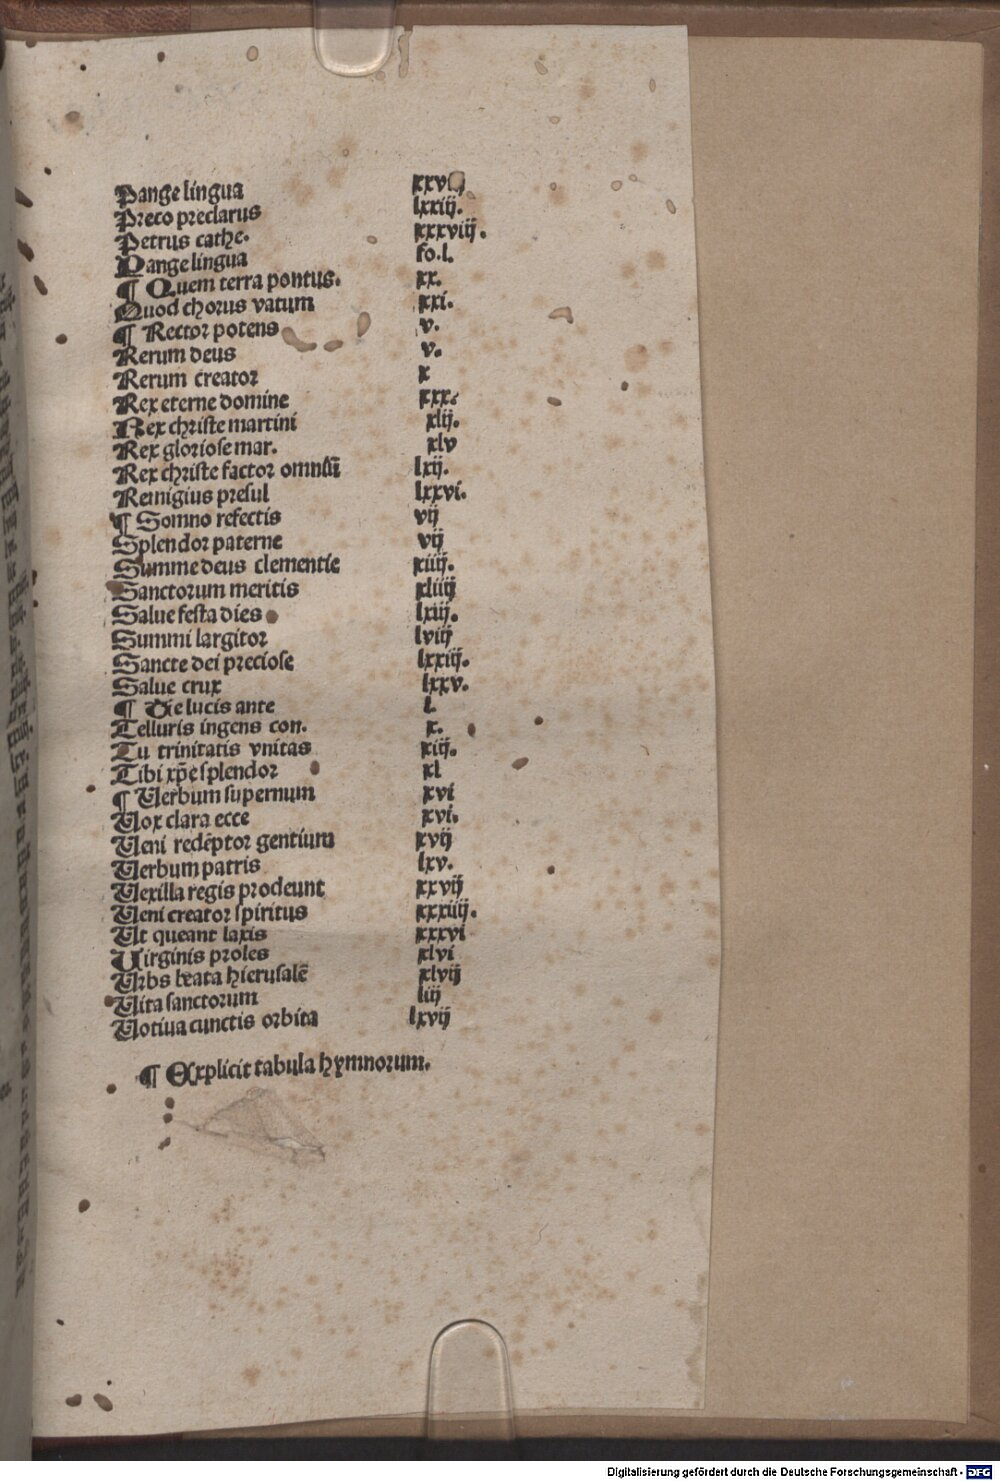 Pange lingua xxviij
Preco preclarus lxxiij.
Petrus cathe. xxxviij.
Pange lingua fo.l.
¶ Quem terra pontus. xx.
Quod chorus vatum xxi.
¶ Rector potens v.
Rerum deus v.
Rerum creator x
Rex eterne domine xxx.
Rex christe martini xlij.
Rex gloriose mar. xlv
Rex christe factor omniũ lxij.
Remigius presul lxxvi.
¶ Somno refectis vij
Splendor paterne vij
Summe deus clementie xiiij.
Sanctorum meritis xliiij
Salue festa dies lxiij.
Summi largitor lviij
Sancte dei preciose lxxiij.
Salue crux lxxv.
¶ Te lucis ante l.
Telluris ingens con. x.
Tu trinitatis vnitas xiij.
Tibi xp̄e splendor xl
¶ Verbum supernum xvi
Vox clara ecce xvi.
Veni redēptor gentium xvij
Verbum patris lxv.
Vexilla regis prodeunt xxvij
Veni creator spiritus xxxiiij.
Vt queant laxis xxxvi
Virginis proles xlvi
Vrbs beata hierusalē xlvij
Vita sanctorum liij
Votiua cunctis orbita lxvij
¶ Explicit tabula hymnorum.
Digitalisierung gefördert durch die Deutsche Forschungsgemeinschaft - DFG